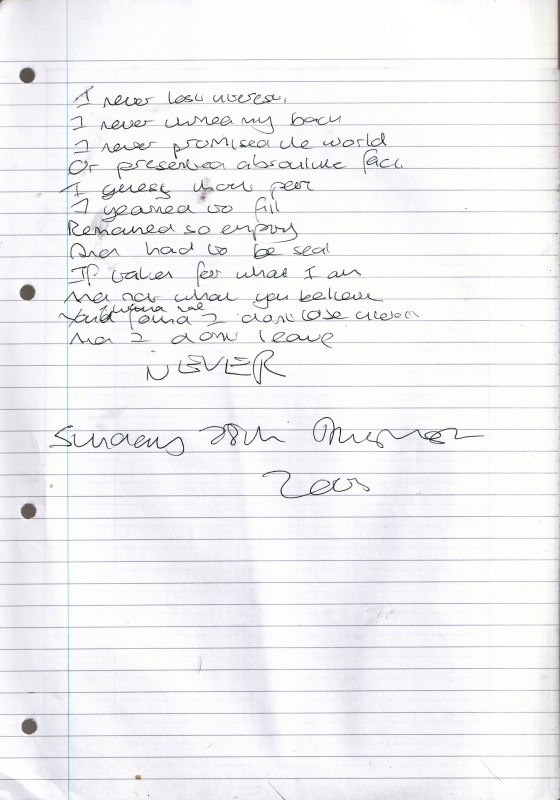 I never lost interest,
I never turned my back
I never promised the world
Or presented absoulute fact.
I guess that
I yearned to fill
Remained so empty
And had to be
If taken for what I am
And not what you believe
found I dont lose
And I dont leave
NEVER
Sunday 28th August
2005